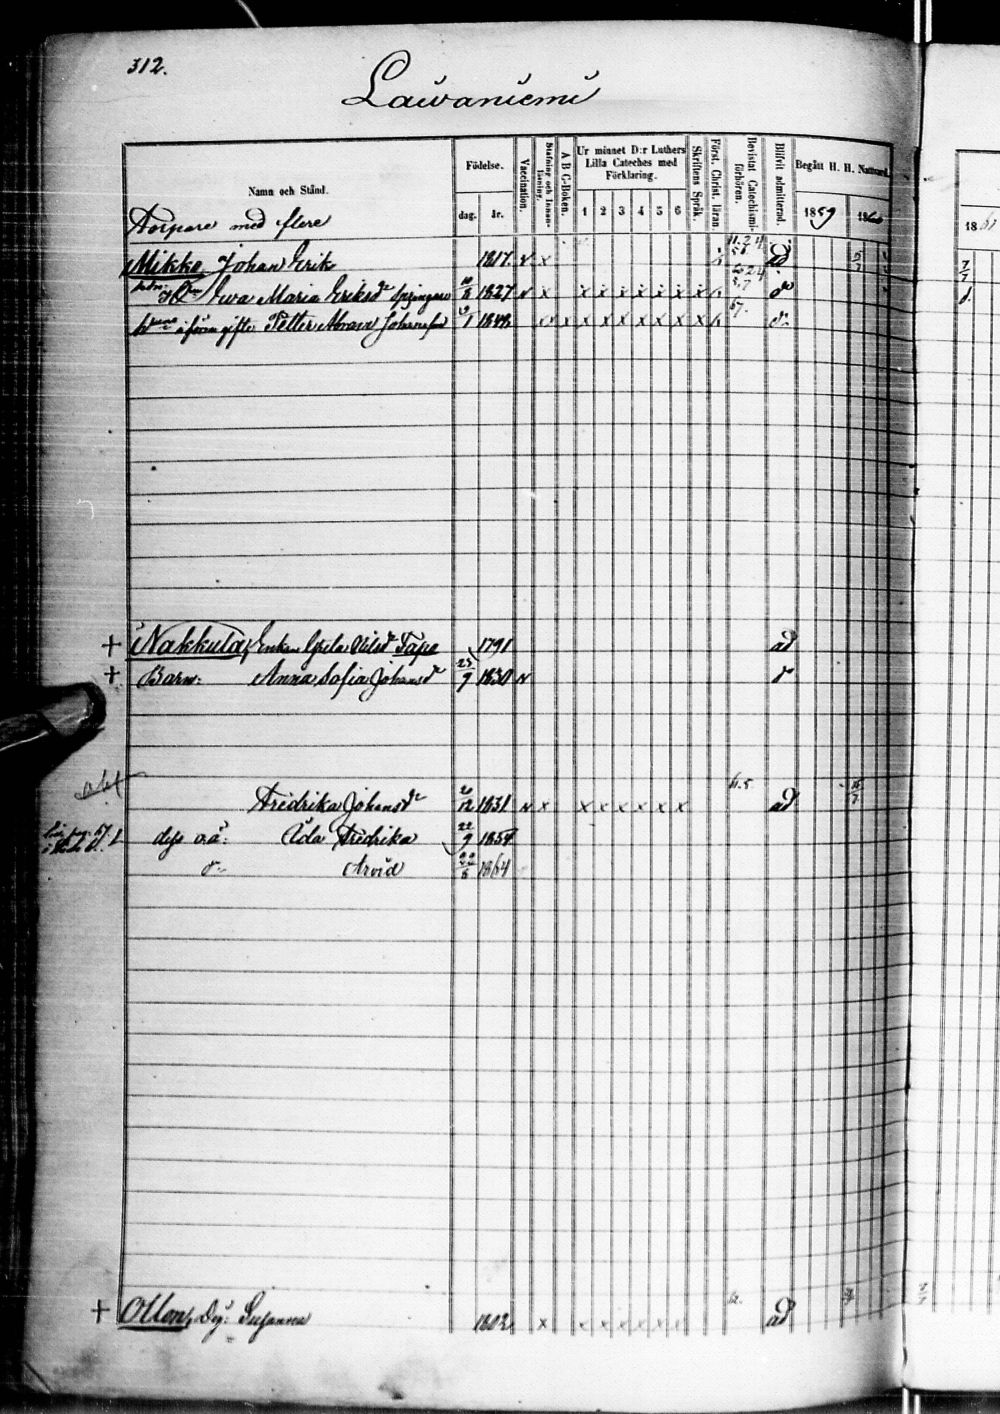 312.
Laivaniemi
Namn och Stånd.
Födelse.
dag. år.
Vaccination.
Stafning och Innanläsning.
A B C-Boken.
Ur minnet D:r Luthers Lilla Cateches med Förklaring.
1 2 3 4 5 6
Skriftens Språk.
Först. Christ. läran.
Bevistat Catechismiförhören.
Blifvit admitterad.
Begått H. H. Nattvard.
1859 1860
1861
Torpare med flere
Mikko, Johan Erik 1817. v x ad
Ewa Maria Eriksdr 10/8 1827 v x x x x x x x x
Petter Abram Johansson 1848 x x x x x x x
† Nakkula, Enkan Greta Nilsdr Tapo 1791 ad
† Barn: Anna Sofia Johansdr 25/9 1830 v
Fredrika Johansdr 20/12 1831 v x x x x x x x ad
dess o.ä: Ada Fredrika 22/9 1854
Arvid 22/5 1864
† Ollon, Susanna 1802 x x x x x x x ad